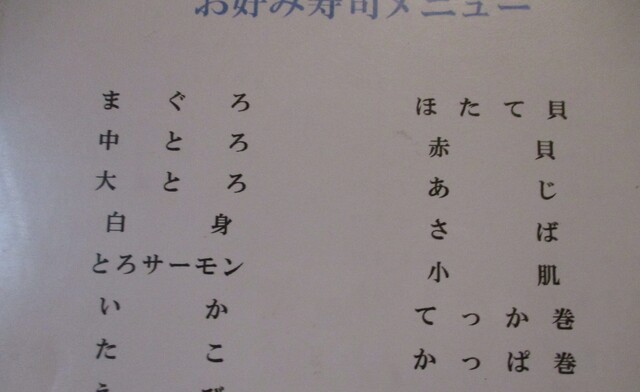 お好み寿司メニュー
まぐろ
中とろ
大とろ
白身
とろサーモン
いか
たこ
えび
ほたて貝
赤貝
あじ
さば
小肌
てっか巻
かっぱ巻